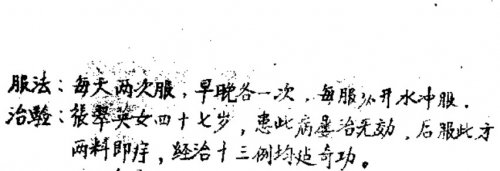 服法：每天两次服，早晚各一次，每服以开水冲服．
治验：張翠英女四十七岁，患此病屡治无効，后服此方
两料即疗，经治十三例均处奇功。